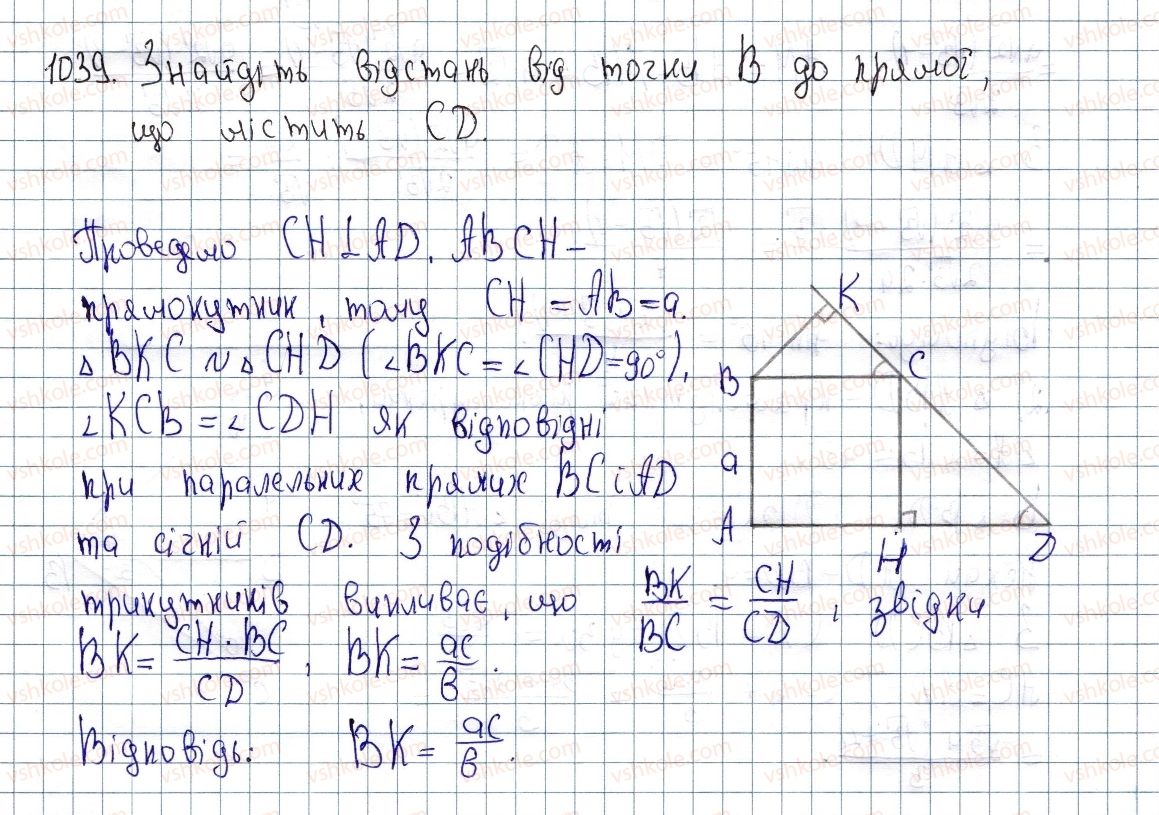 1039. Знайдіть відстань від точки В до прямої,
що містить CD.
Проведемо CH⊥AD. ABCH –
прямокутник, тому CH = AB = a.
△BKC ∾ △CHD (∠BKC = ∠CHD = 90°),
∠KCB = ∠CDH як відповідні
при паралельних прямих BC і AD
та січній CD. З подібності
трикутників випливає, що BK/BC = CH/CD, звідки
BK = CH · BC/CD, BK = ac/в.
Відповідь: BK = ac/в.
K
B
C
a
A
H
D
vshkole.com